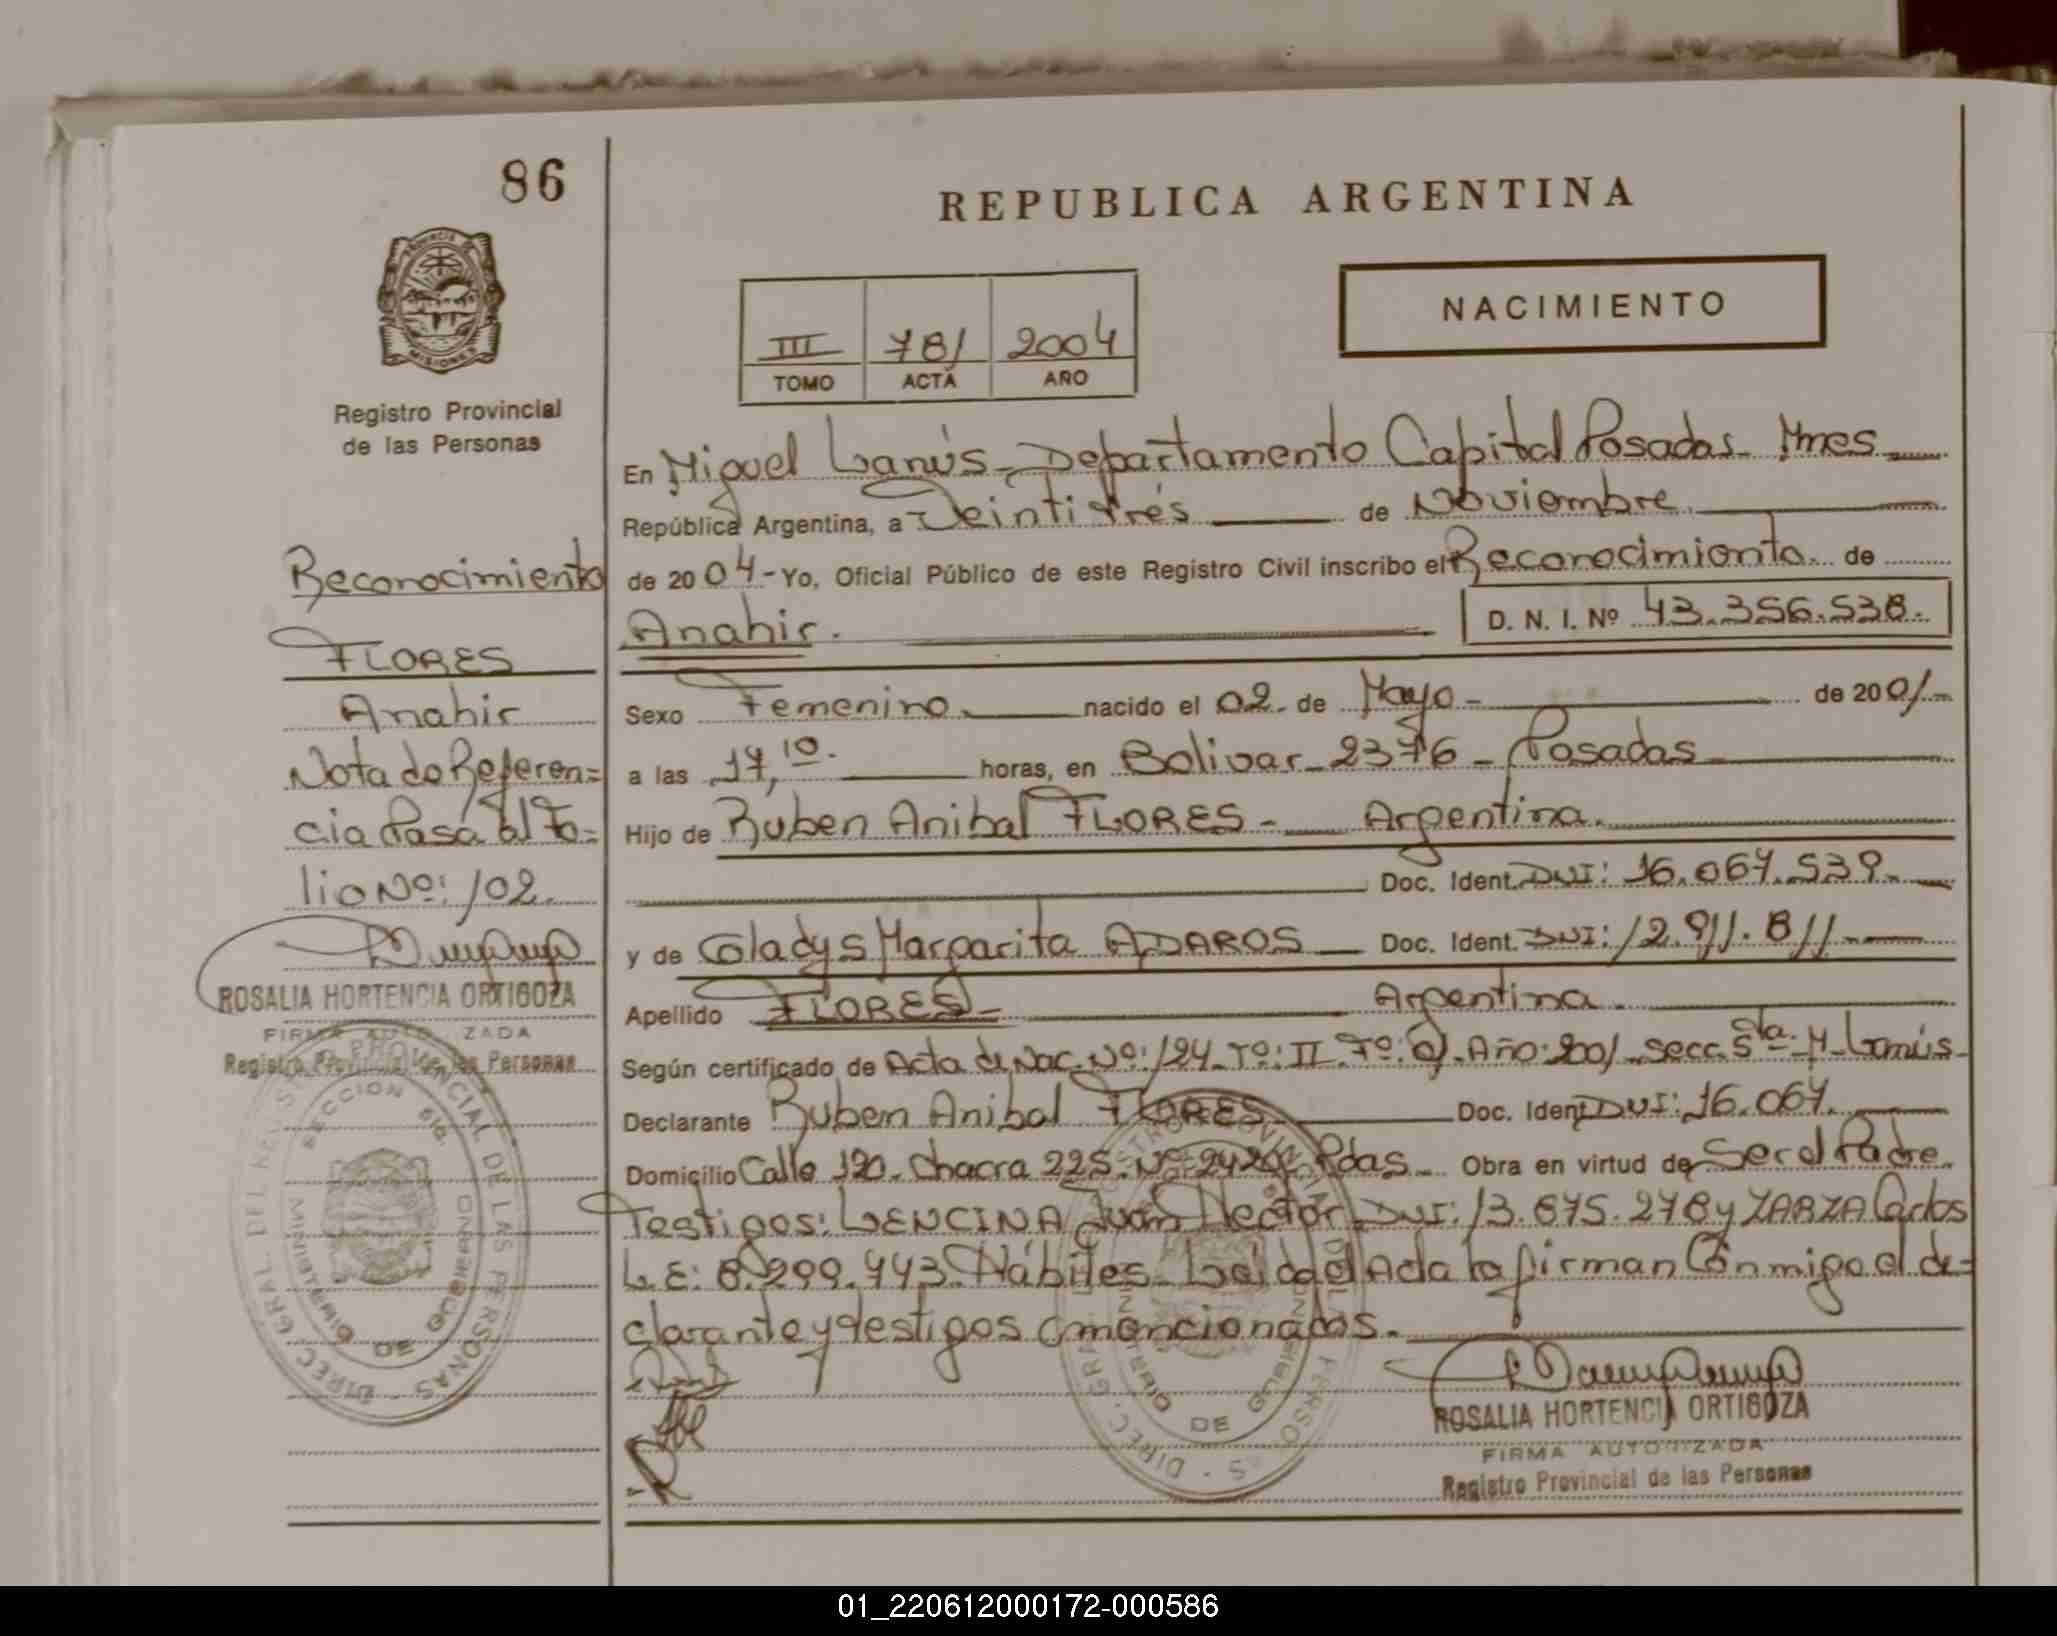 86
REPUBLICA ARGENTINA
NACIMIENTO
III 781 2004
TOMO ACTA AÑO
PROVINCIA DE
MISIONES
Registro Provincial
de las Personas
Reconocimiento
FLORES
Anahir
Nota de Referen=
cia Pasa al Fo=
lio Nº: 102.
ROSALIA HORTENCIA ORTIGOZA
FIRMA AUTORIZADA
Registro Provincial de las Personas
En Miguel Lanús - Departamento Capital Posadas - Mnes
República Argentina, a Veintitrés de Noviembre
de 2004 - Yo, Oficial Público de este Registro Civil inscribo el Reconocimiento de
Anahir. D. N. I. Nº 43.356.538.
Sexo Femenino nacido el 02 de Mayo - de 2001
a las 17,10. horas, en Bolivar - 2376 - Posadas
Hijo de Ruben Anibal FLORES - Argentina.
Doc. Ident. DNI: 16.067.539.
y de Gladys Margarita ADAROS Doc. Ident. DNI: 12.911.811.
Apellido FLORES - Argentina.
Según certificado de Acta de Nac. Nº: 124 - Tº: II - Fº: - Año: 2001 - Secc. 5ta. M - Lanús
Declarante Ruben Anibal FLORES Doc. Ident DNI: 16.067.
Domicilio Calle 120 - Chacra 225 - Nº 2420 - Pdas - Obra en virtud de Ser el Padre.
Testigos: LENCINA Juan Hector DNI: 13.675.278 y ZARZA Carlos
L.E: 8.299.443. Hábiles - Leida el Acta la firman Conmigo el de=
clarante y testigos mencionados.
ROSALIA HORTENCIA ORTIGOZA
FIRMA AUTORIZADA
Registro Provincial de las Personas
01_220612000172-000586